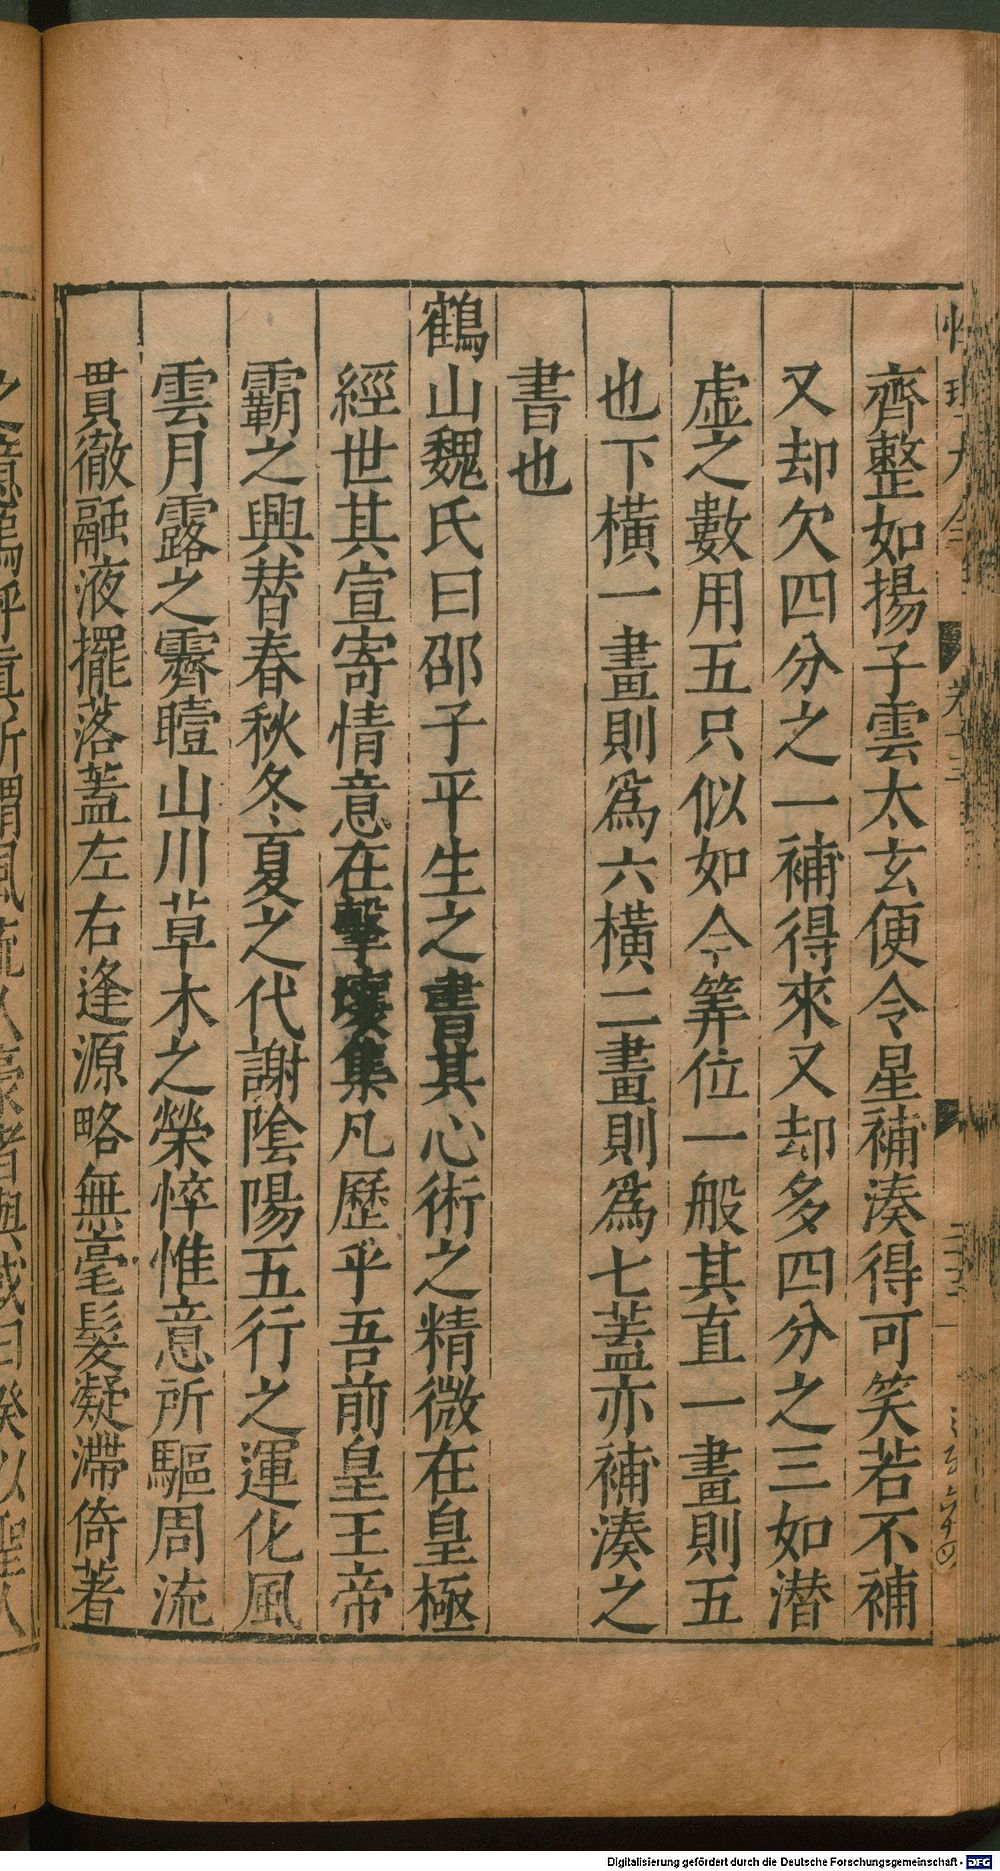 齊整如揚子雲太玄便令星補湊得可笑若不補
又却欠四分之一補得來又却多四分之三如潜
虚之數用五只似如今筭位一般其直一畫則五
也下横一畫則爲六横二畫則爲七蓋亦補湊之
書也
鶴山魏氏曰邵子平生之書其心術之精微在皇極
經世其宣寄情意在擊壤集凡歷乎吾前皇王帝
霸之興替春秋冬夏之代謝隂陽五行之運化風
雲月露之霽曀山川草木之榮悴惟意所驅周流
貫徹融液擺落蓋左右逢源略無毫髮凝滯倚著
Digitalisierung gefördert durch die Deutsche Forschungsgemeinschaft - DFG